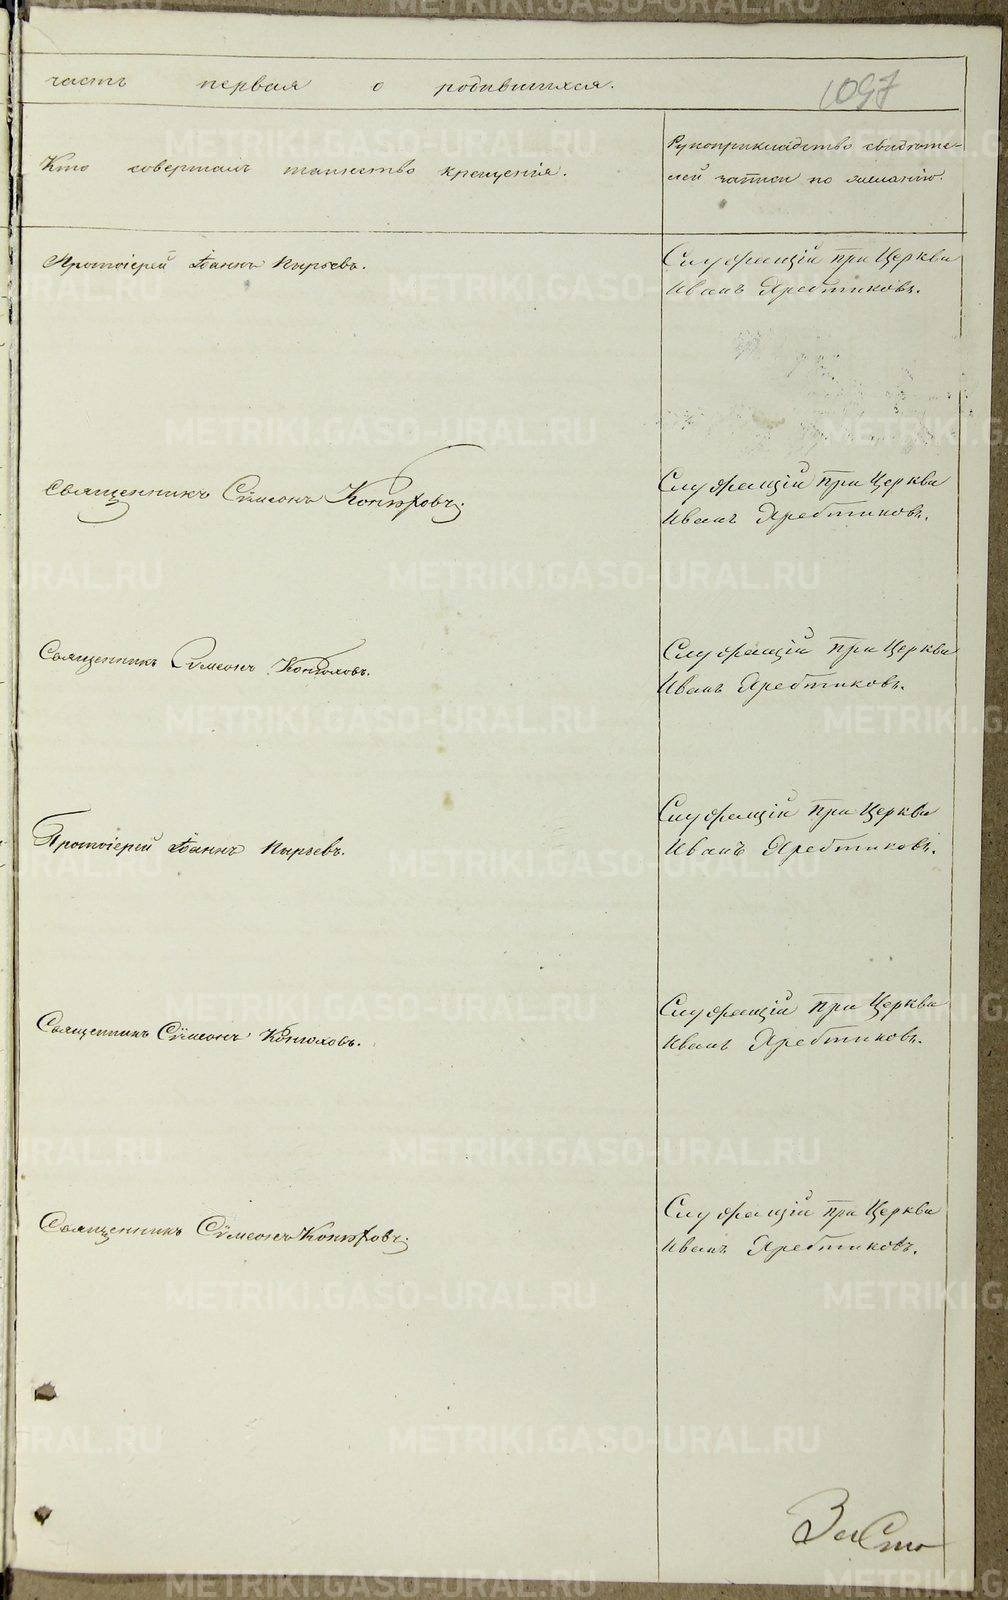 часть первая о родившихся.
1097
Кто совершалъ таинство крещенія.
Рукоприкладство свидѣте-
лей записи по желанію.
Протоіерей Іоаннъ Пырьевъ.
Служащій при Церкви
Иванъ Яребтиковъ.
Священникъ Сѵмеонъ Конюховъ.
Служащій при Церкви
Иванъ Яребтиковъ.
Священникъ Сѵмеонъ Конюховъ.
Служащій при Церкви
Иванъ Яребтиковъ.
Протоіерей Іоаннъ Пырьевъ.
Служащій при Церкви
Иванъ Яребтиковъ.
Священникъ Сѵмеонъ Конюховъ.
Служащій при Церкви
Иванъ Яребтиковъ.
Священникъ Сѵмеонъ Конюховъ.
Служащій при Церкви
Иванъ Яребтиковъ.
METRIKI.GASO-URAL.RU